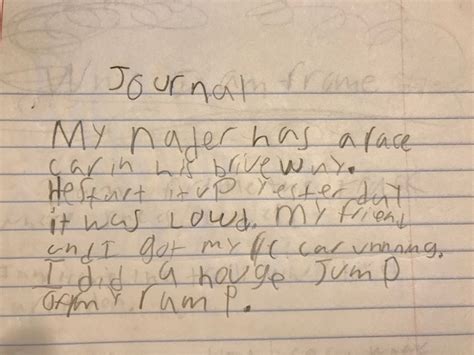 Journal
My nader has a race
car in his brivewny.
He start it up yesterday
it was Lowd. My friend
and I got my RC car running.
I did a houge Jump
off my ramp.